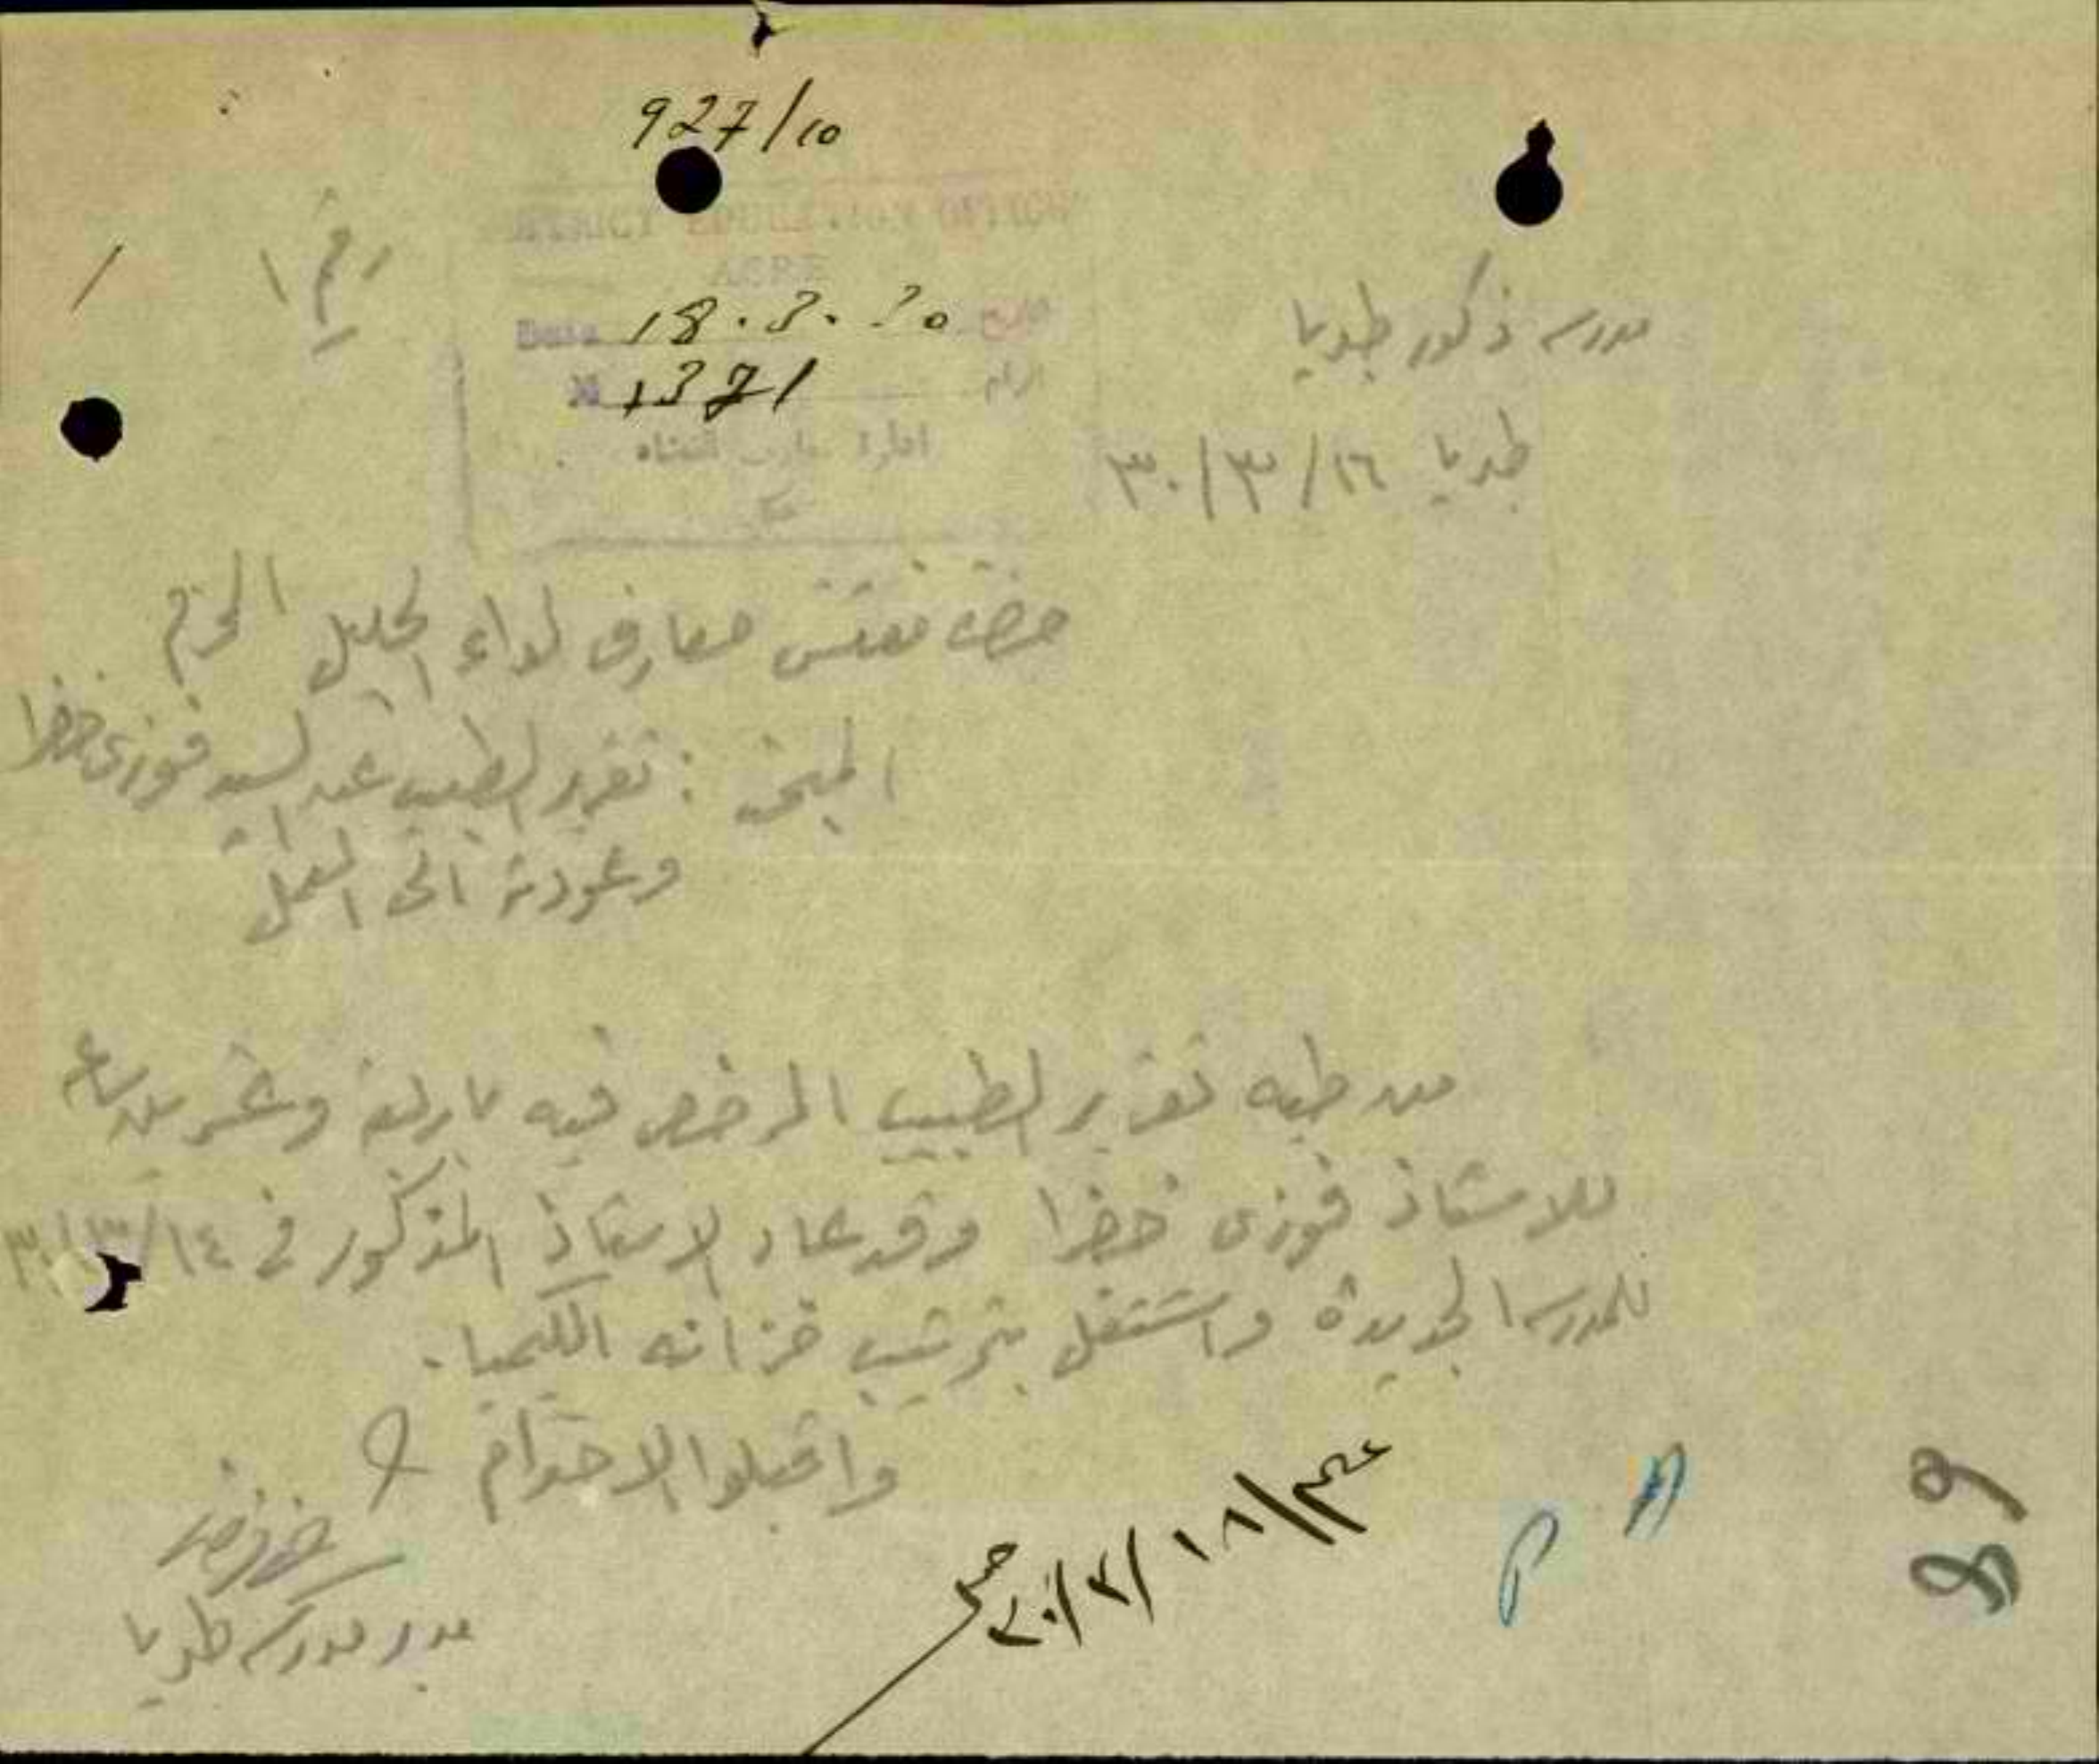 927/10
رقم ١
DISTRICT EDUCATION OFFICE
ACRE
Date 18.3.30 التاريخ
№ 1371 الرقم
ادارة معارف القضاء
مدرسة ذكور طبريا
طبريا ١٦/٣/٣٠
حضرة مفتش معارف لواء الجليل المحترم
المبحث : تقرير الطبيب عن السيد فوزي خضرا
وعودته الى العمل
من طيه تقرير الطبيب المرخص فيه باربعة وعشرين ساعة
للاستاذ فوزي خضرا وقد عاد الاستاذ المذكور في ١٤/٣/٣٠
للمدرسة الجديدة واشتغل بترتيب خزانة الكيميا.
واقبلوا الاحترام
مدير مدرسة طبريا
١٨/٣/٣٠
P A
89